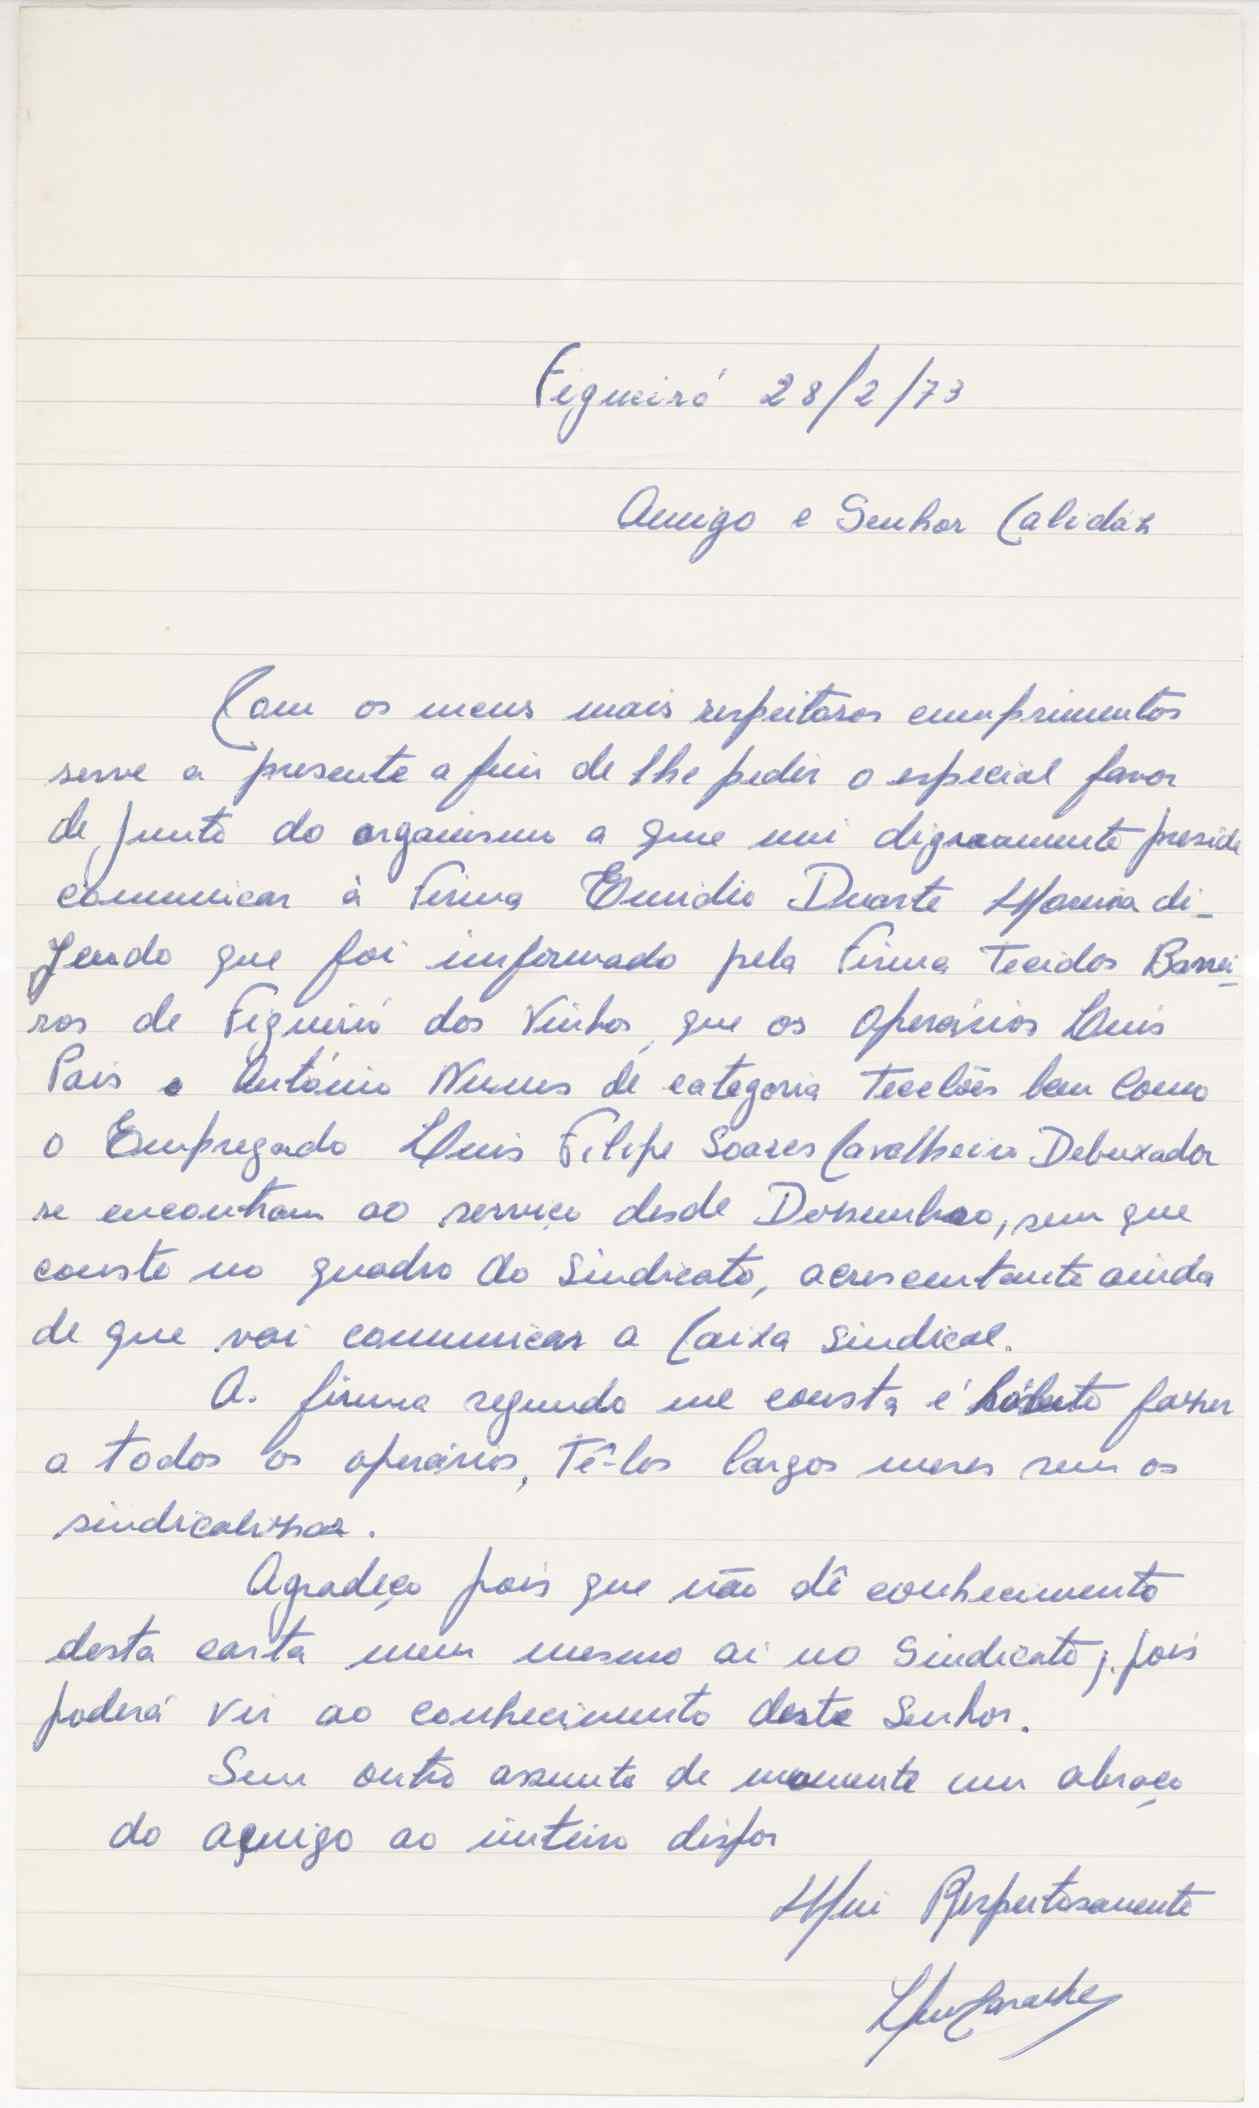 Figueiró 28/2/73
Amigo e Senhor Calidáz
Com os meus mais respeitosos cumprimentos
serve a presente a fim de lhe pedir o especial favor
de junto do organismo a que mui dignamente preside
comunicar à Firma Emidio Duarte di-
zendo que foi informado pela Firma Tecidos Barrei-
ros de Figueiró dos Vinhos, que os operários Luis
Pais e António Nunes de categoria Tecelões bem como
o Empregado Luis Filipe Soares Cavalheiro Debuxador
se encontram ao serviço desde, sem que
conste no quadro do Sindicato, acrescentante ainda
de que vai comunicar a Caixa Sindical.
A. firma segundo me consta é hábito fazer
a todos os operários, Tê-los largos meses sem os
sindicalizar.
Agradeço pois que não dê conhecimento
desta carta nem mesmo ai no Sindicato; pois
poderá vir ao conhecimento deste Senhor.
Sem outro assunto de momento um abraço
do amigo ao inteiro dispor
Mui Respeitosamente